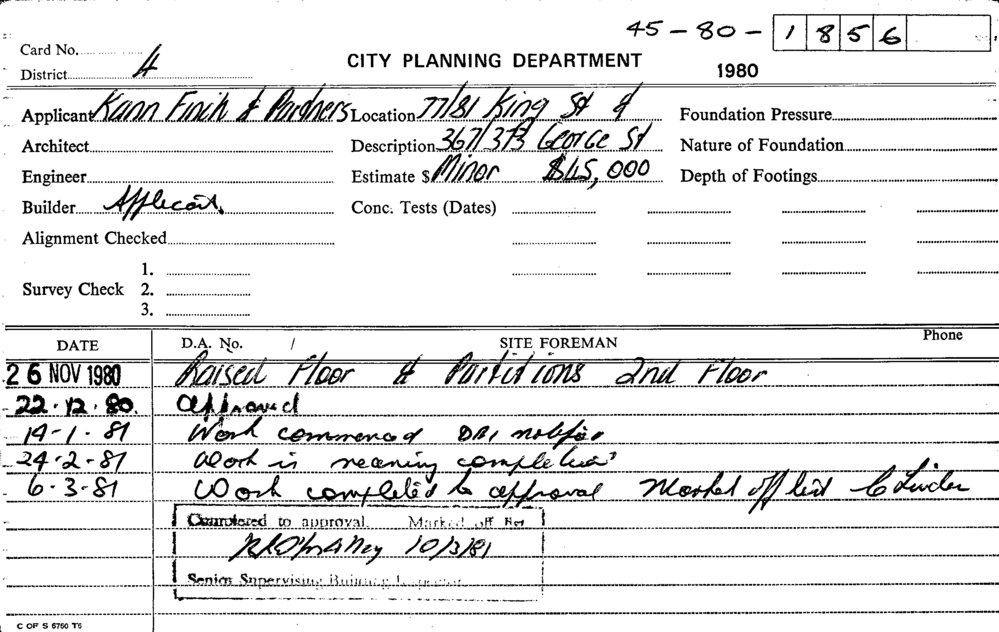 45-80- 1856
Card No.
District 4
CITY PLANNING DEPARTMENT
1980
Applicant Kann Finch & Partners Location 77/81 King St & Foundation Pressure
Architect Description 367/373 George St Nature of Foundation
Engineer Estimate $ Minor $45,000 Depth of Footings
Builder Applicant. Conc. Tests (Dates)
Alignment Checked
1.
Survey Check 2.
3.
DATE D.A. No. / SITE FOREMAN Phone
26 NOV 1980 Raised Floor & Partitions 2nd Floor
22.12.80. approved
19-1-81 Work commenced notified
24-2-81 Work is nearing completion
6-3-81 Work completed to approval Marked off list
Completed to approval. Marked off list
10/3/81
Senior Supervising Building Inspector
C OF S 6760 T6